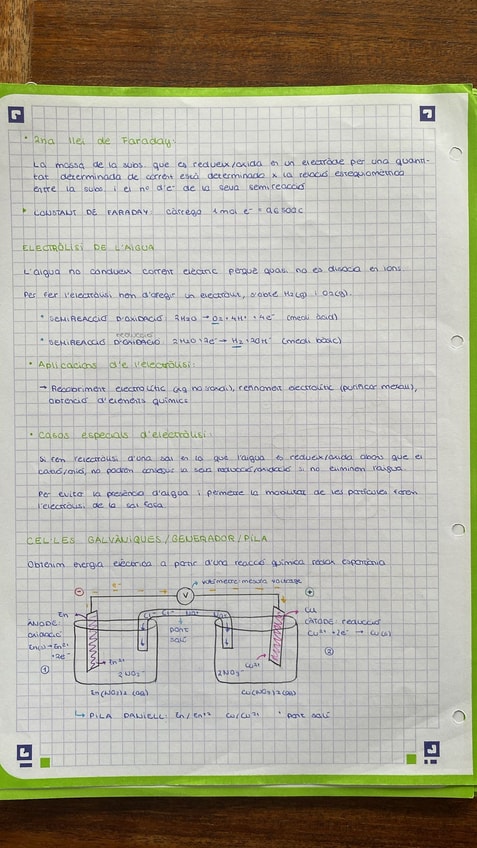 • 2na llei de Faraday:
La massa de la subs. que es redueix/oxida en un elèctrode per una quanti-
tat determinada de corrent està determinada x la relació estequiomètrica
entre la subs i el nº d'e⁻ de la seva semireacció
CONSTANT DE FARADAY: càrrega 1 mol e⁻ = 96500C
ELECTRÒLISI DE L'AIGUA
L'aigua no condueix corrent elèctric perquè quasi no es dissocia en ions.
Per fer l'electròlisi hem d'afegir un electròlit, s'obté H₂(g) i O₂(g).
• SEMIREACCIÓ D'OXIDACIÓ 2H₂O → O₂ + 4H⁺ + 4e⁻ (medi àcid)
reducció
• SEMIREACCIÓ D'OXIDACIÓ 2H₂O + 2e⁻ → H₂ + 2OH⁻ (medi bàsic)
• Aplicacions de l'electròlisi:
→ Recobriment electrolític (Ag no s'oxida), refinament electrolític (purificar metalls),
obtenció d'elements químics
• Casos especials d'electròlisi:
Si fem l'electròlisi d'una sal en la que l'aigua es redueix/oxida abans que el
catió/anió, no podrem conseguir la seva reducció/oxidació si no eliminem l'aigua.
Per evitar la presència d'aigua i permetre la mobilitat de les partícules farem
l'electròlisi de la sal fosa.
CEL·LES GALVÀNIQUES/GENERADOR/PILA
Obtenim energia elèctrica a partir d'una reacció química redox espontània
voltímetre: mesura voltatge
⊖ e⁻ V ⊕
Zn Cu
ÀNODE: oxidació
Zn(s) → Zn²⁺ + 2e⁻
①
CÀTODE: reducció
Cu²⁺ + 2e⁻ → Cu(s)
②
Cl⁻ Cl⁻ Na⁺ Na⁺
PONT SALÍ
Zn²⁺ Cu²⁺
2NO₃⁻ 2NO₃⁻
Zn(NO₃)₂ (aq) Cu(NO₃)₂(aq)
↳ PILA DANIELL: Zn/Zn²⁺ Cu/Cu²⁺ pont salí